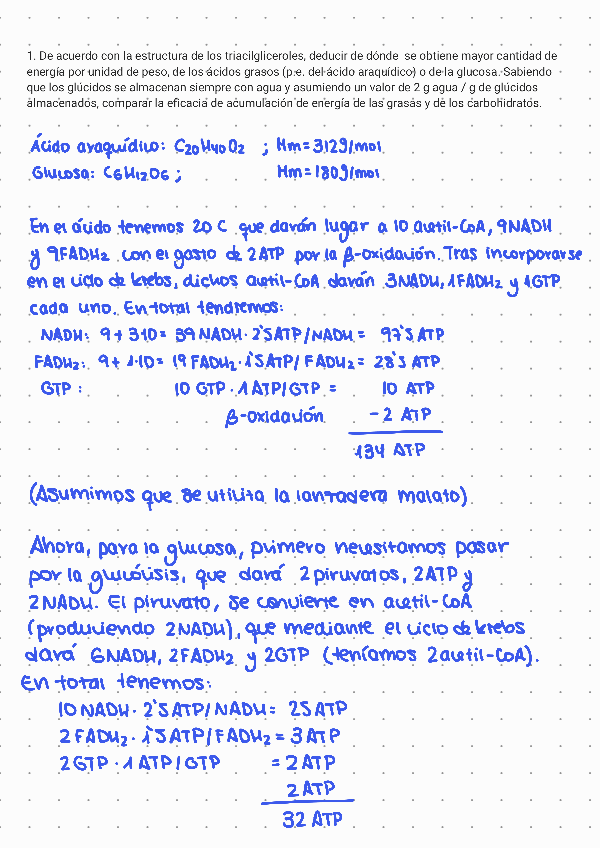 1. De acuerdo con la estructura de los triacilgliceroles, deducir de dónde se obtiene mayor cantidad de
energía por unidad de peso, de los ácidos grasos (p.e. del ácido araquídico) o de la glucosa. Sabiendo
que los glúcidos se almacenan siempre con agua y asumiendo un valor de 2 g agua / g de glúcidos
almacenados, comparar la eficacia de acumulación de energía de las grasas y de los carbohidratos.
Ácido araquídico: C20H40O2 ; Mm=312g/mol
Glucosa: C6H12O6 ; Mm=180g/mol
En el ácido tenemos 20 C que darán lugar a 10 acetil-CoA, 9NADH
y 9FADH2 con el gasto de 2ATP por la β-oxidación. Tras incorporarse
en el ciclo de krebs, dichos acetil-CoA darán 3NADH, 1FADH2 y 1GTP
cada uno. En total tendremos:
NADH: 9+3·10= 39 NADH · 2'5ATP/NADH = 97'5 ATP
FADH2: 9+1·10= 19 FADH2 · 1'5ATP/FADH2 = 28'5 ATP
GTP : 10 GTP · 1 ATP/GTP = 10 ATP
β-oxidación -2 ATP
134 ATP
(Asumimos que se utiliza la lanzadera malato)
Ahora, para la glucosa, primero necesitamos pasar
por la glucólisis, que dará 2 piruvatos, 2ATP y
2NADH. El piruvato, se convierte en acetil-CoA
(produciendo 2NADH), que mediante el ciclo de krebs
dará 6NADH, 2FADH2 y 2GTP (teníamos 2acetil-CoA).
En total tenemos:
10 NADH · 2'5ATP/NADH = 25 ATP
2 FADH2 · 1'5ATP/FADH2 = 3 ATP
2 GTP · 1 ATP/GTP = 2 ATP
2 ATP
32 ATP